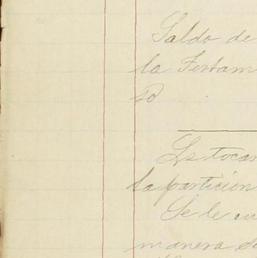 Saldo de
la Testam
so
Ls tocan
la partición
Se le
manera de